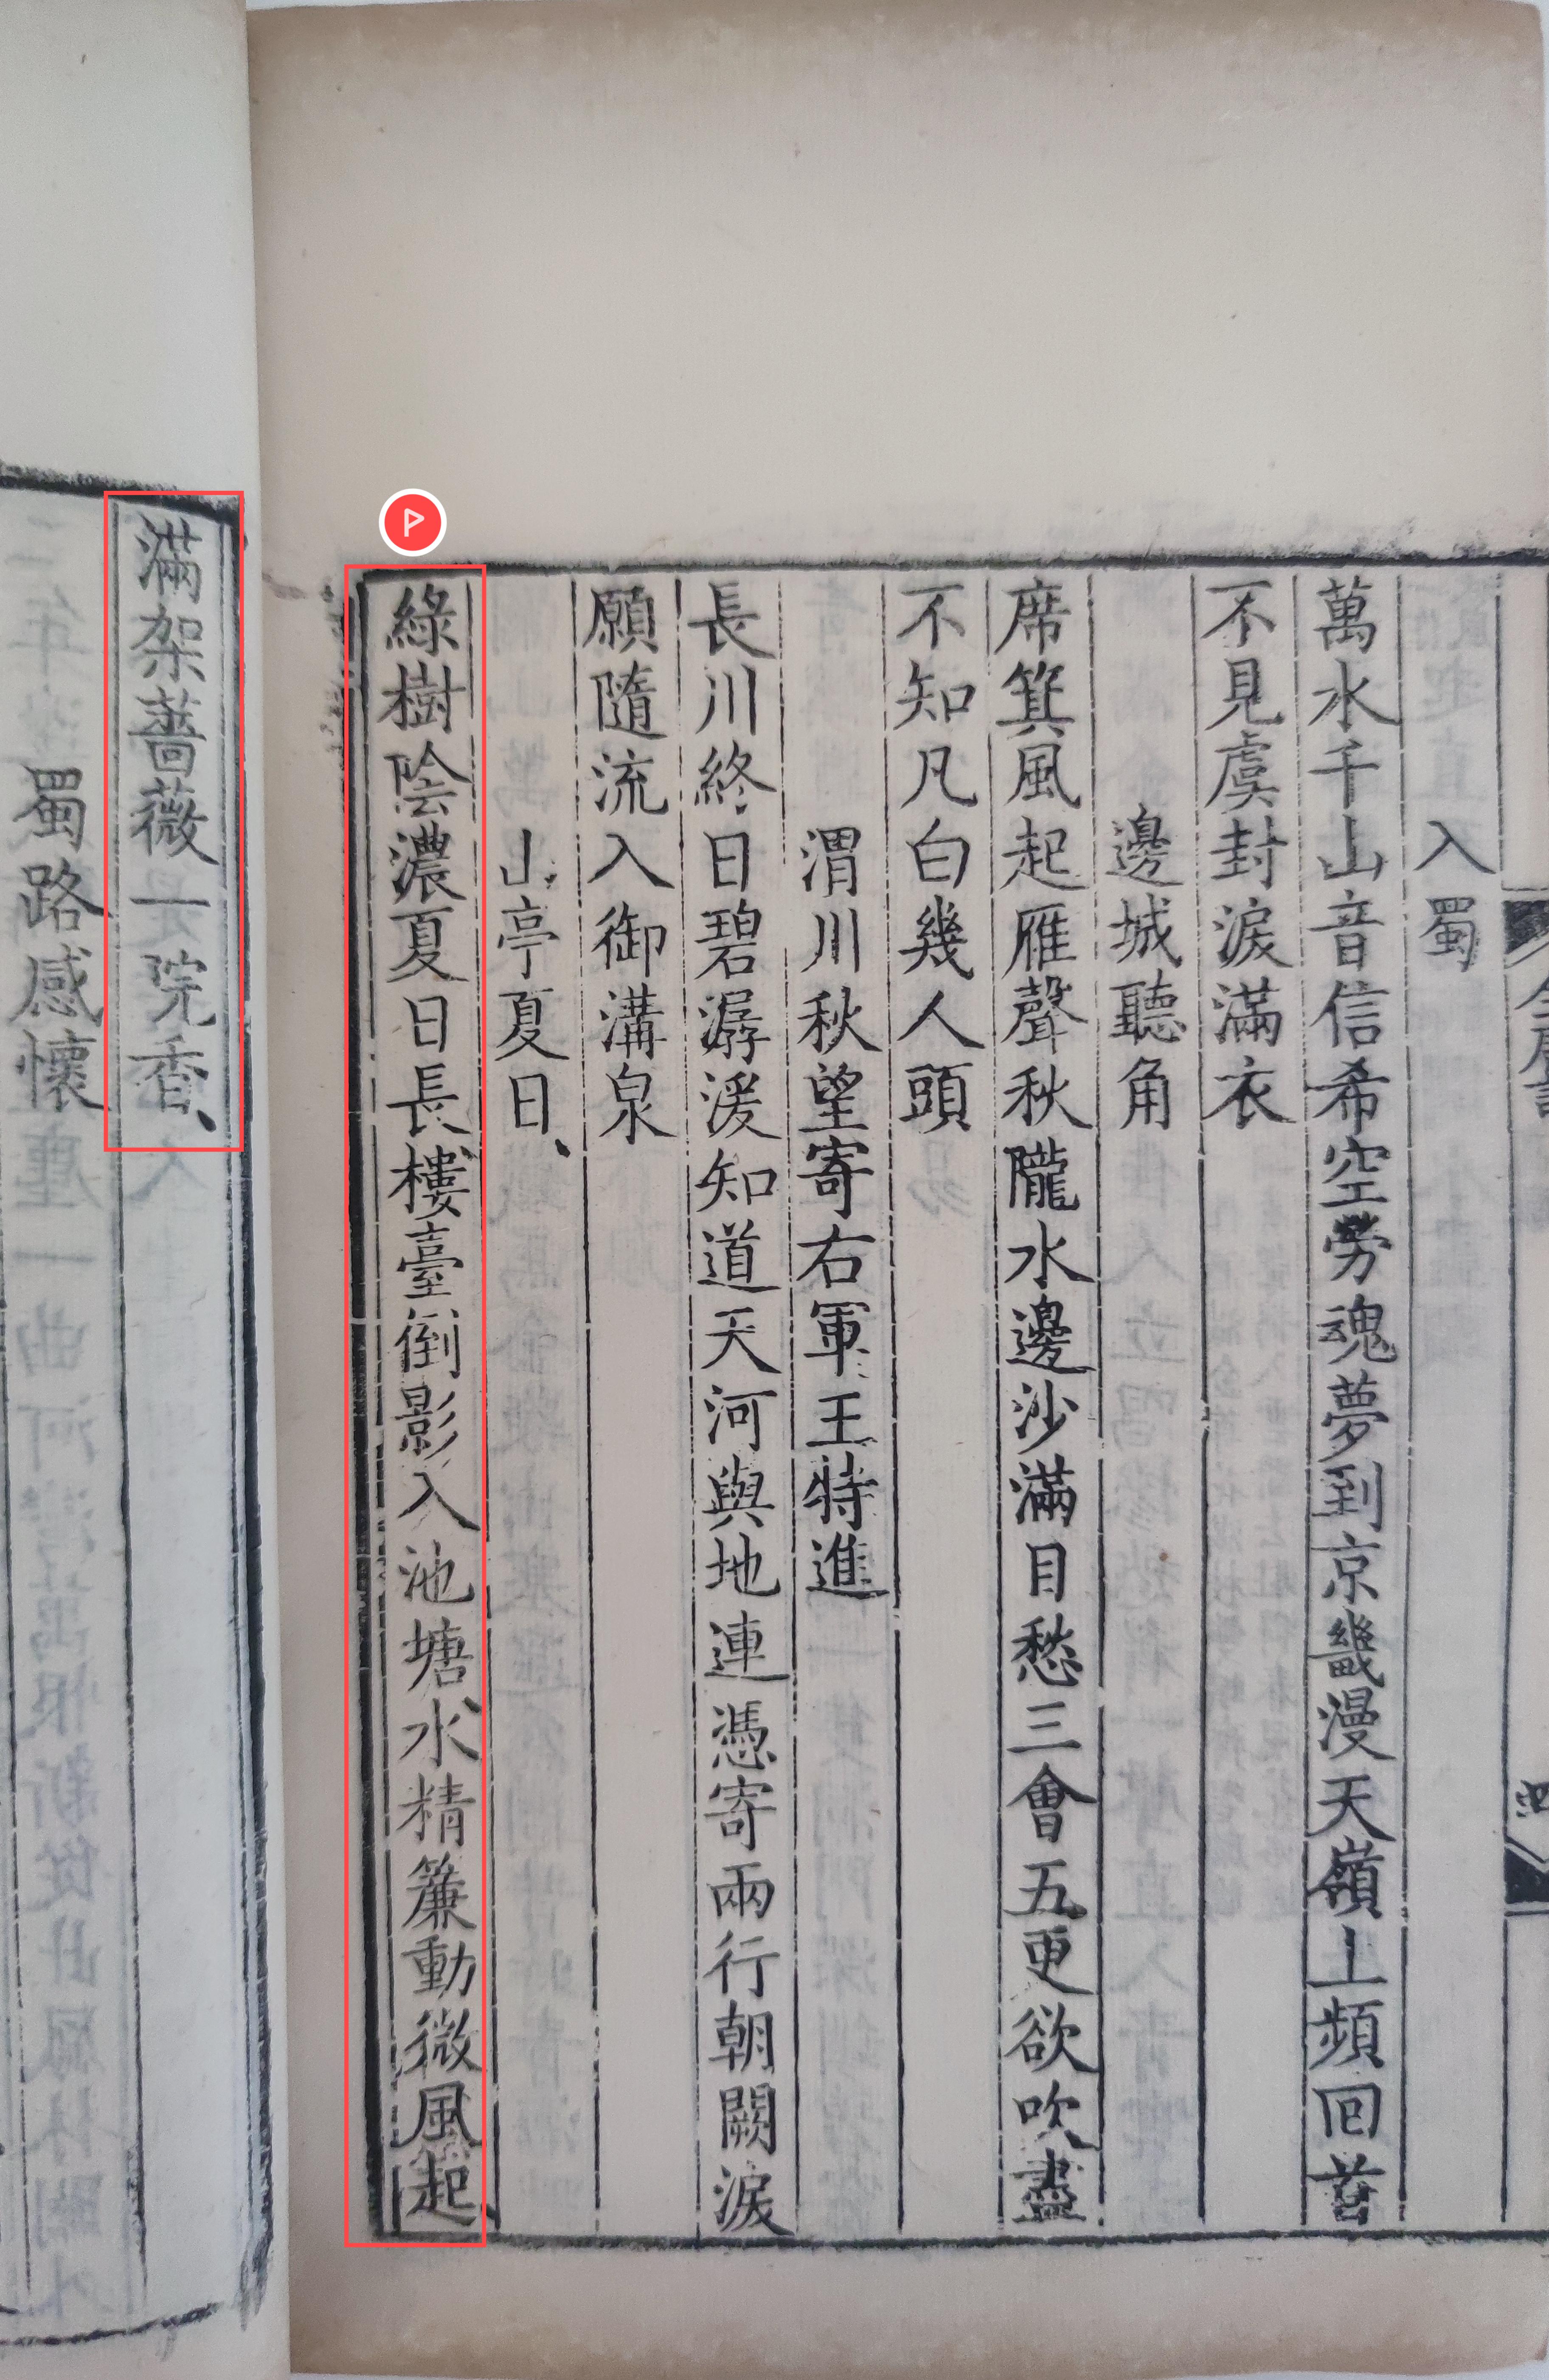 入蜀
萬水千山音信希空勞魂夢到京畿漫天嶺上頻回首
不見虞封淚滿衣
邊城聽角
席箕風起雁聲秋隴水邊沙滿目愁三會五更欲吹盡
不知凡白幾人頭
渭川秋望寄右軍王特進
長川終日碧潺湲知道天河與地連憑寄兩行朝闕淚
願隨流入御溝泉
山亭夏日
綠樹陰濃夏日長樓臺倒影入池塘水精簾動微風起
滿架薔薇一院香
蜀路感懷